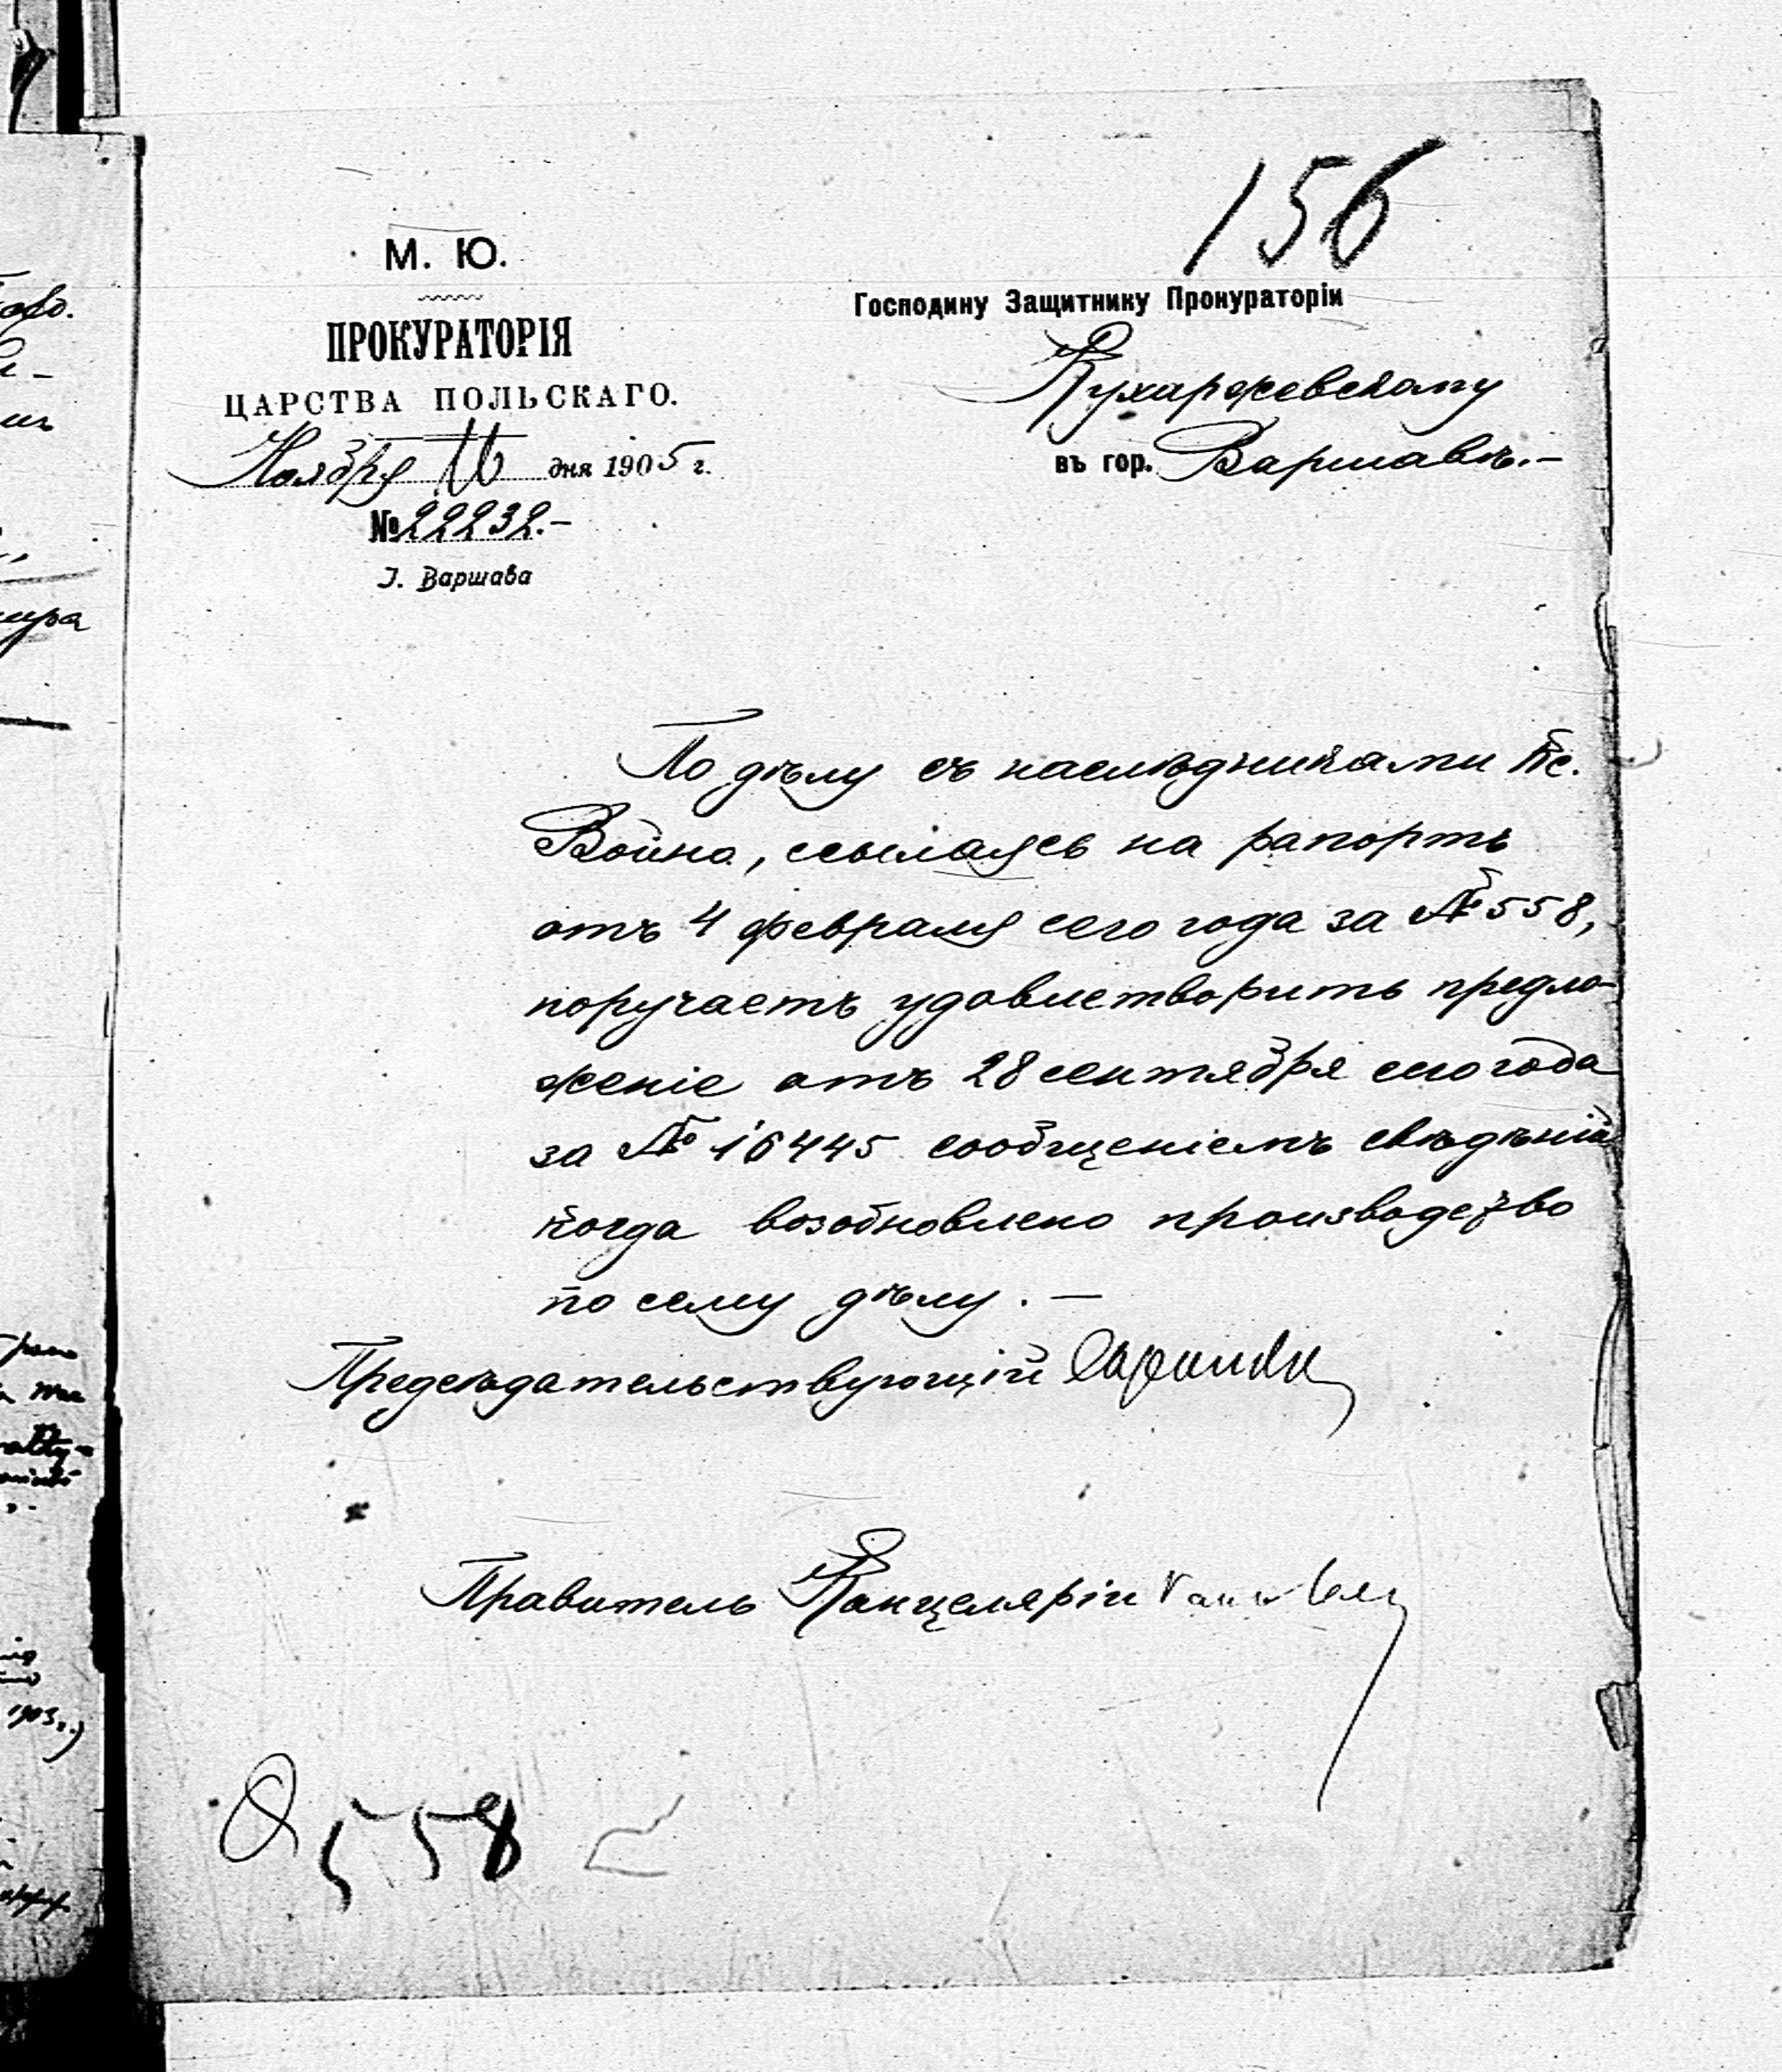 156
М. Ю.
ПРОКУРАТОРІЯ
ЦАРСТВА ПОЛЬСКАГО.
Ноября 16 дня 1905 г.
№ 22232.-
Г. Варшава
Господину Защитнику Прокураторіи
Кухаржевскому
въ гор. Варшавѣ.-
По дѣлу съ наслѣдниками Кс.
Война, ссылаясь на рапортъ
отъ 4 февраля сего года за № 558,
поручаетъ удовлетворить предло-
женіе отъ 28 сентября сего года
за № 16445 сообщеніемъ свѣдѣній
когда возобновлено производство
по сему дѣлу. —
Предсѣдательствующій
Правитель Канцеляріи
558